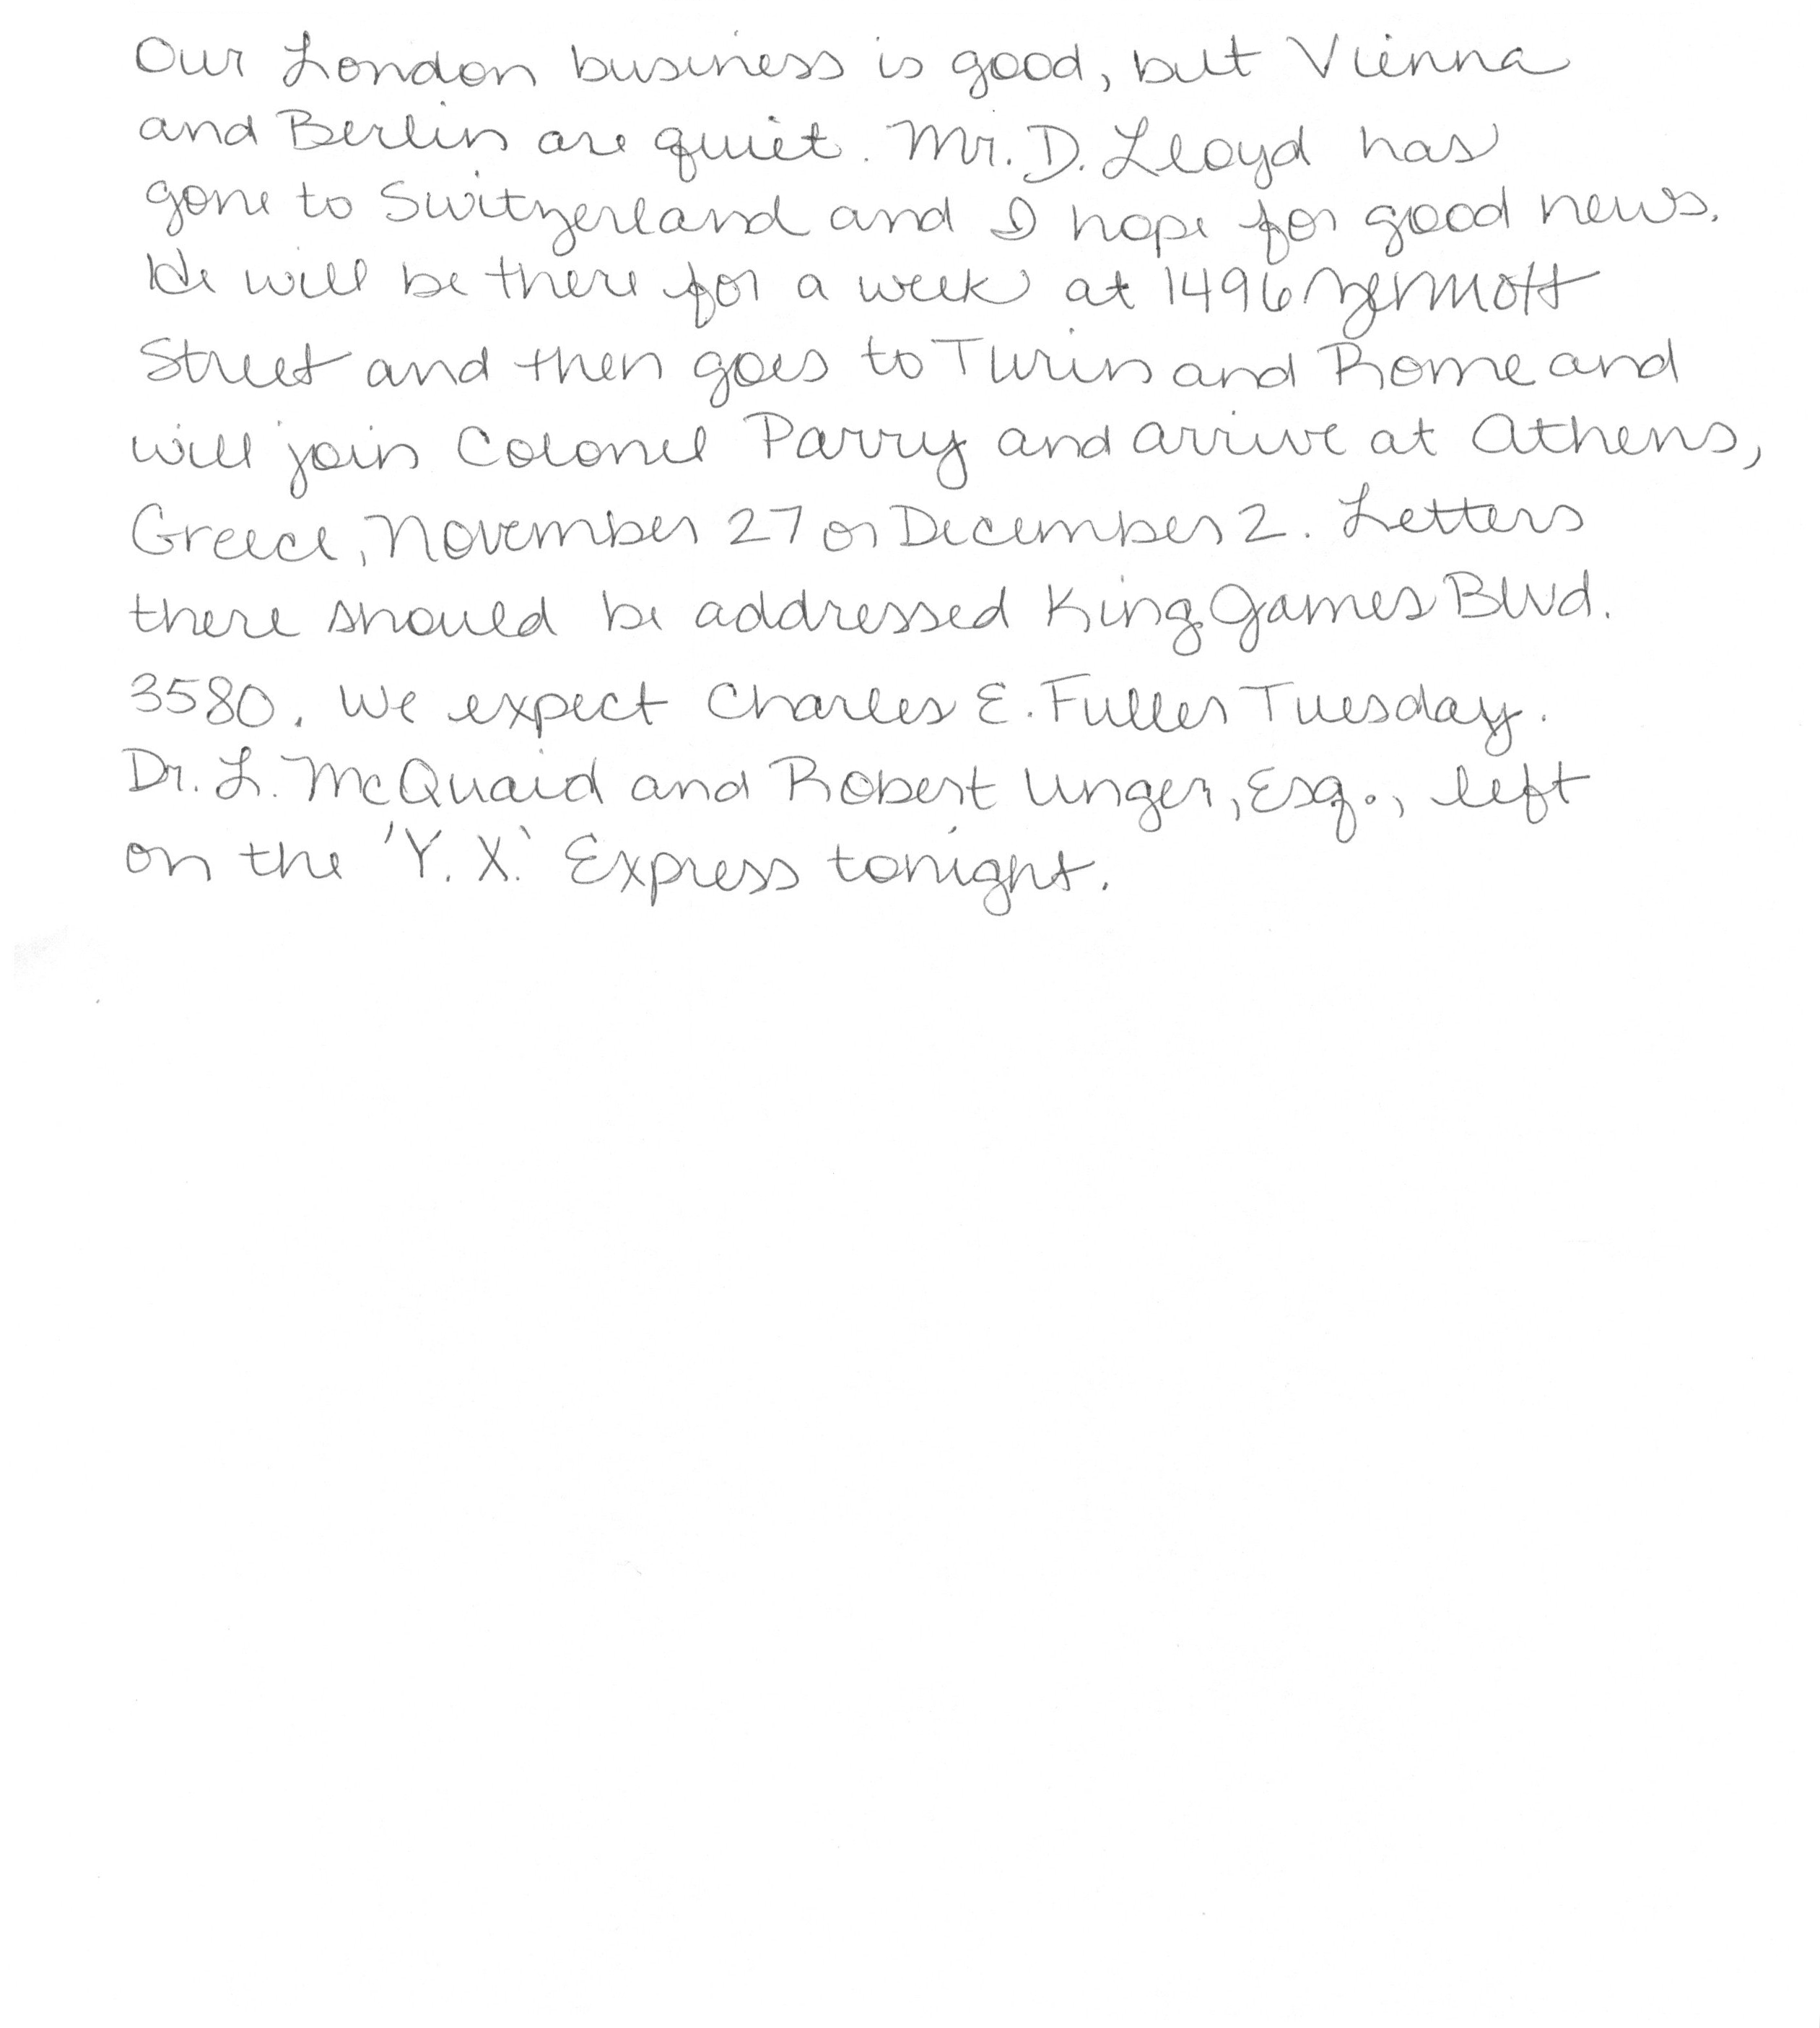 Our London business is good, but Vienna
and Berlin are quiet. Mr. D. Lloyd has
gone to Switzerland and I hope for good news.
He will be there for a week at 1496 Zermott
Street and then goes to Turin and Rome and
will join Colonel Parry and arrive at Athens,
Greece, November 27 or December 2. Letters
there should be addressed King James Blvd.
3580. We expect Charles E. Fuller Tuesday.
Dr. L. McQuaid and Robert Unger, Esq., left
on the 'Y. X.' Express tonight.